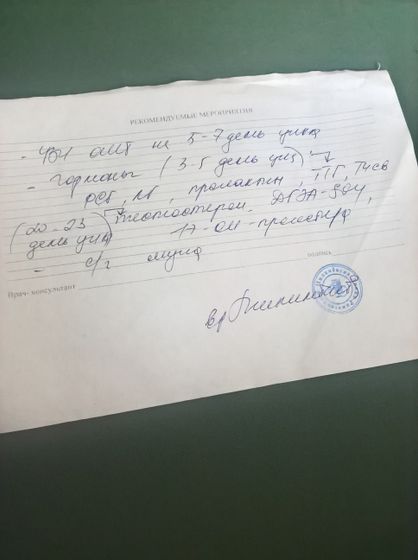 РЕКОМЕНДУЕМЫЕ МЕРОПРИЯТИЯ
- УЗИ ОМТ на 5-7 день цикла
- Гормоны (3-5 день цик)
ФСГ, ЛГ, пролактин, ТТГ, Т4св
(20-23 день цик) тестостерон, ДГЭА-SO4,
17-ОН-прогестер,
- с/г мужа
Врач-консультант
подпись
вр